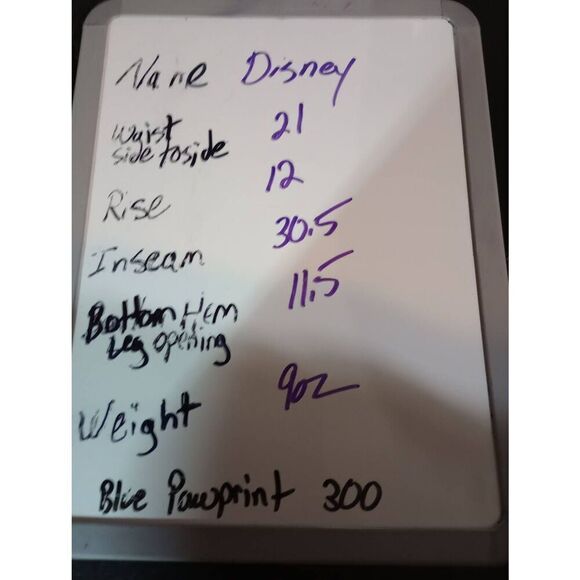 Name Disney
Waist 21
side toside
Rise 12
Inseam 30.5
Bottom Hem 11.5
Leg opening
Weight 9oz
Blue Pawprint 300